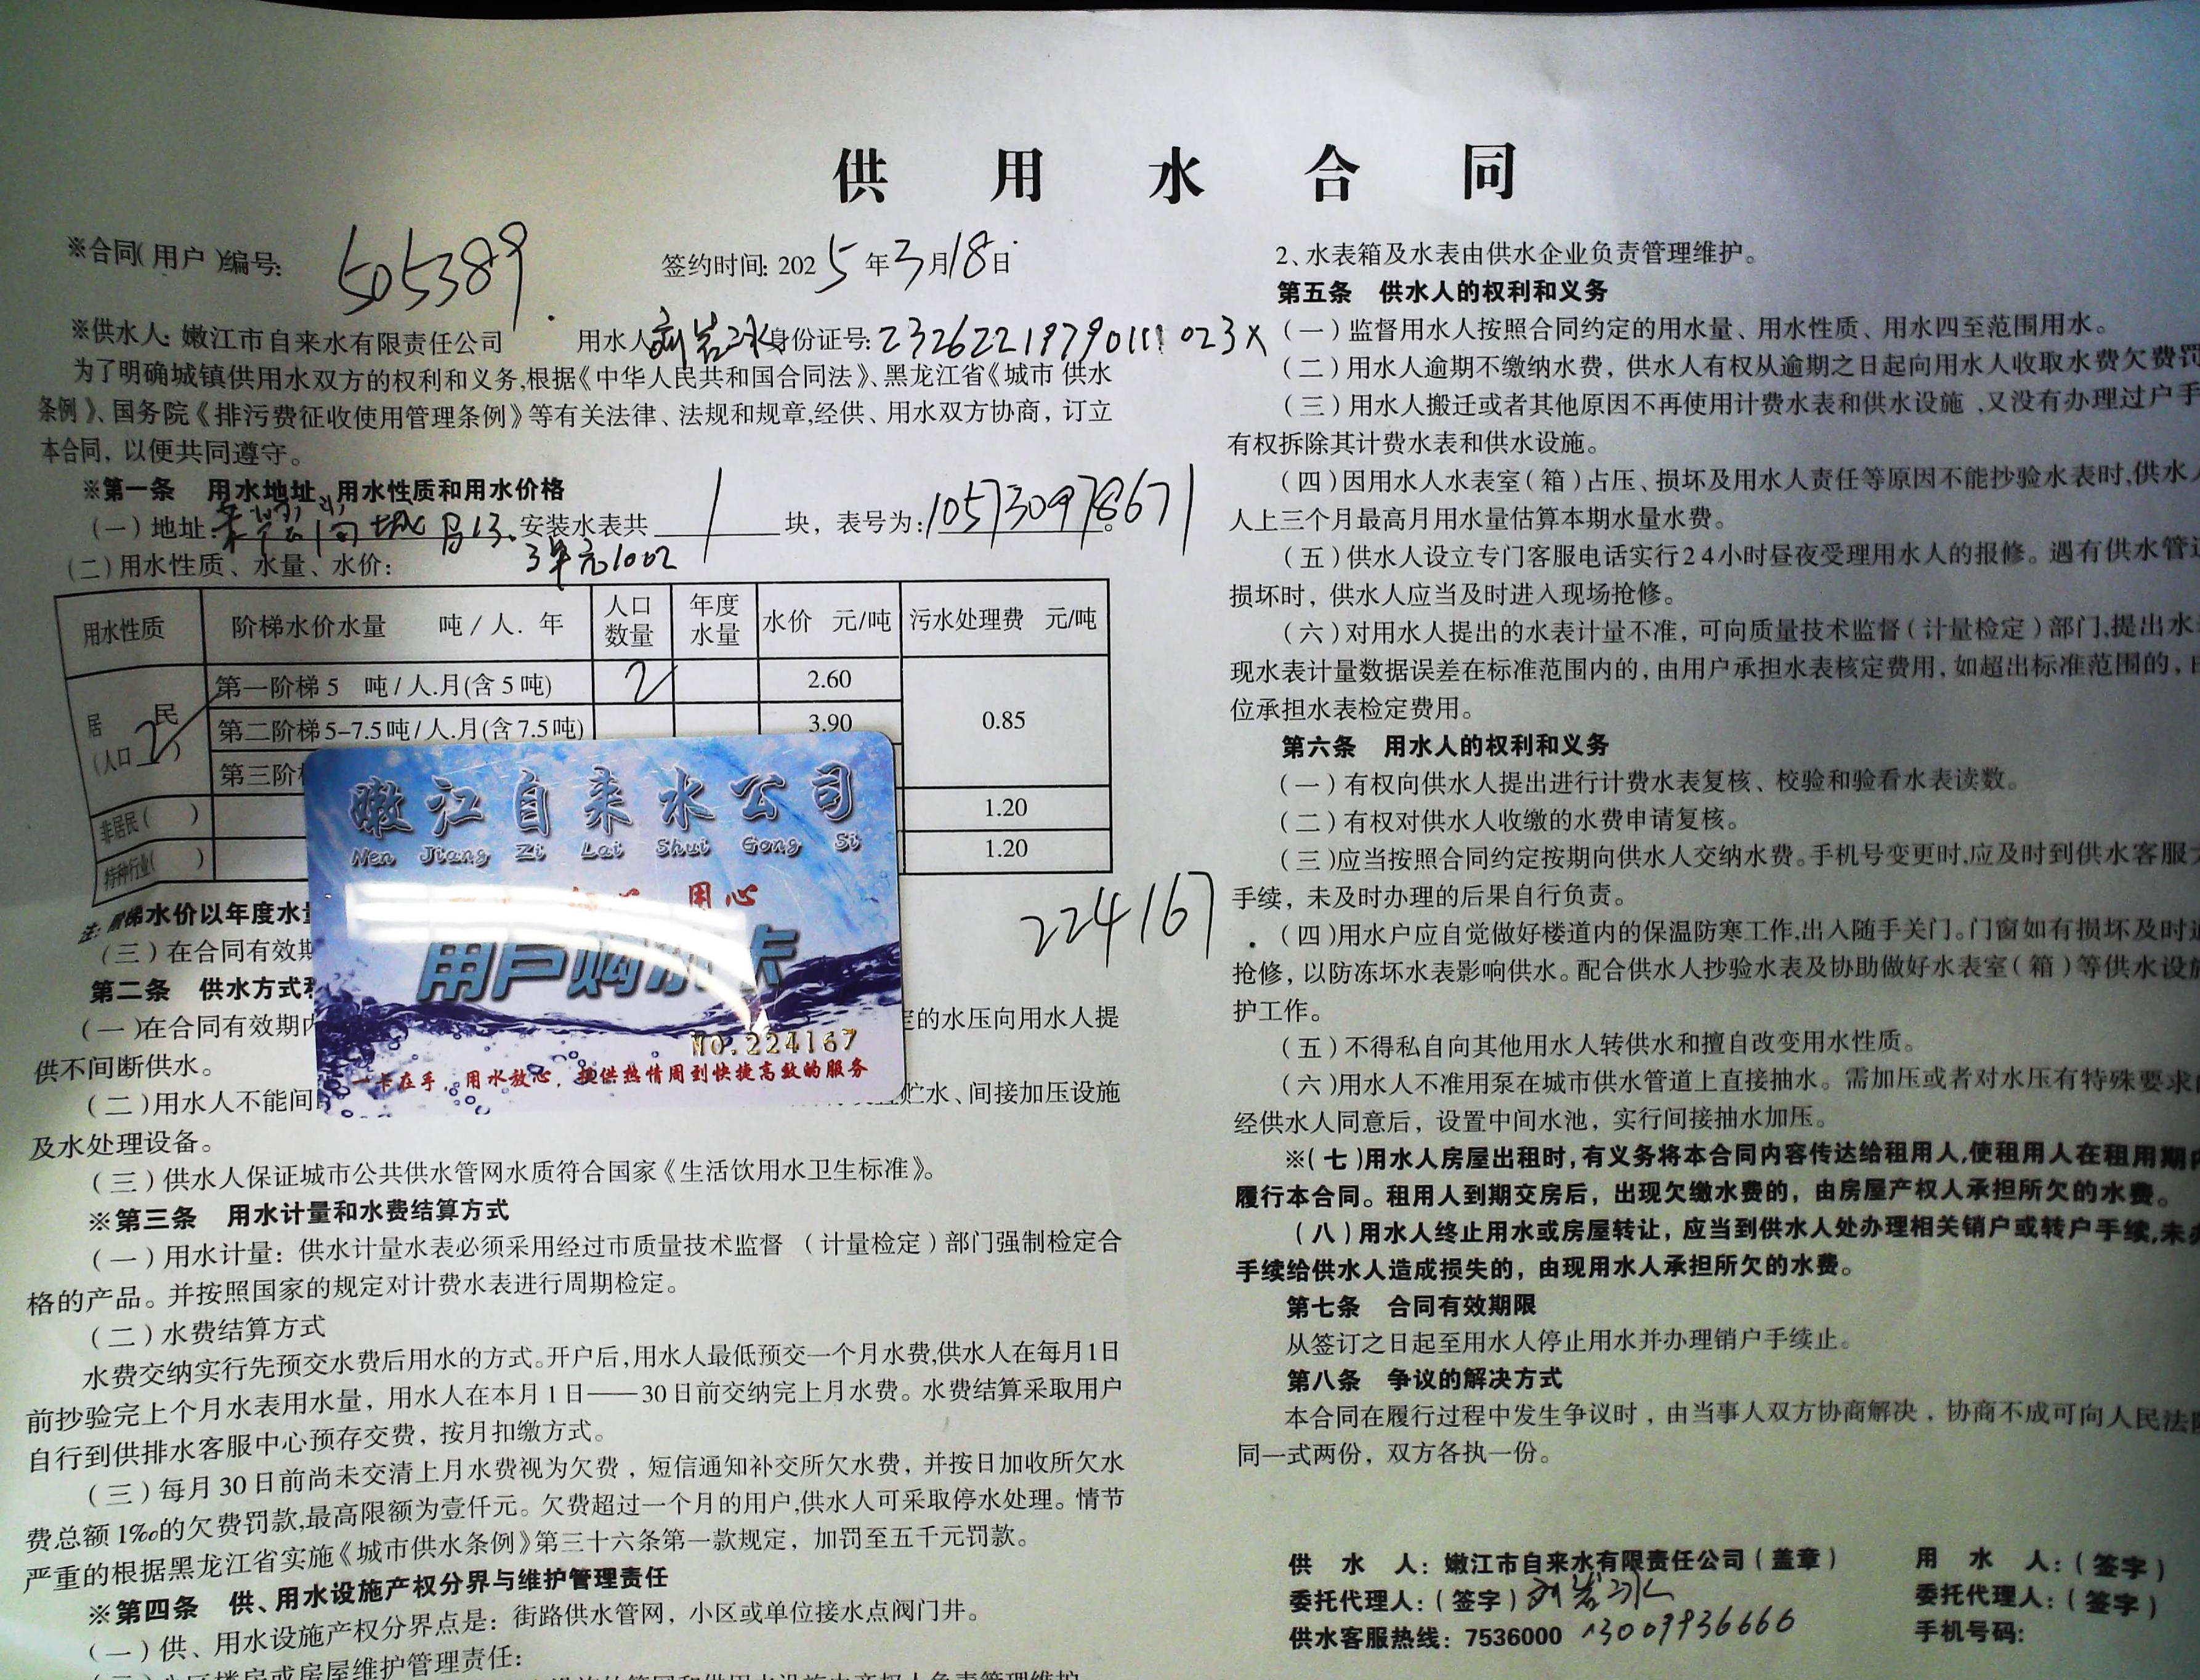 供用水合同
※合同(用户)编号: 505389.
签约时间: 2025年3月18日
※供水人: 嫩江市自来水有限责任公司 用水人 刘岩冰 身份证号:
为了明确城镇供用水双方的权利和义务,根据《中华人民共和国合同法》、黑龙江省《城市 供水
条例》、国务院《排污费征收使用管理条例》等有关法律、法规和规章,经供、用水双方协商，订立
本合同，以便共同遵守。
※第一条 用水地址、用水性质和用水价格
(一)地址: 安装水表共 1 块，表号为: 105730978671
3单元1002
(二)用水性质、水量、水价:
用水性质 阶梯水价水量 吨/人. 年 人口数量 年度水量 水价 元/吨 污水处理费 元/吨
居民(人口 2 ) 第一阶梯 5 吨/人.月(含 5 吨) 2 2.60 0.85
第二阶梯 5-7.5 吨/人.月(含 7.5 吨) 3.90
第三阶
非居民( ) 1.20
特种行业( ) 1.20
注: 阶梯水价以年度水
224167
(三)在合同有效期
第二条 供水方式
(一)在合同有效期内 的水压向用水人提
供不间断供水。
(二)用水人不能间 贮水、间接加压设施
及水处理设备。
(三)供水人保证城市公共供水管网水质符合国家《生活饮用水卫生标准》。
※第三条 用水计量和水费结算方式
(一)用水计量：供水计量水表必须采用经过市质量技术监督 (计量检定)部门强制检定合
格的产品。并按照国家的规定对计费水表进行周期检定。
(二)水费结算方式
水费交纳实行先预交水费后用水的方式。开户后,用水人最低预交一个月水费,供水人在每月1日
前抄验完上个月水表用水量，用水人在本月 1 日——30 日前交纳完上月水费。水费结算采取用户
自行到供排水客服中心预存交费，按月扣缴方式。
(三)每月 30 日前尚未交清上月水费视为欠费，短信通知补交所欠水费，并按日加收所欠水
费总额 1‰的欠费罚款,最高限额为壹仟元。欠费超过一个月的用户,供水人可采取停水处理。情节
严重的根据黑龙江省实施《城市供水条例》第三十六条第一款规定，加罚至五千元罚款。
※第四条 供、用水设施产权分界与维护管理责任
(一)供、用水设施产权分界点是：街路供水管网，小区或单位接水点阀门井。
嫩江自来水公司
Nen Jiang Zi Lai Shui Gong Si
用心
用户购水卡
NO.224167
一卡在手，用水放心，提供热情周到快捷高效的服务
2、水表箱及水表由供水企业负责管理维护。
第五条 供水人的权利和义务
(一)监督用水人按照合同约定的用水量、用水性质、用水四至范围用水。
(二)用水人逾期不缴纳水费，供水人有权从逾期之日起向用水人收取水费欠费罚
(三)用水人搬迁或者其他原因不再使用计费水表和供水设施，又没有办理过户手
有权拆除其计费水表和供水设施。
(四)因用水人水表室(箱)占压、损坏及用水人责任等原因不能抄验水表时,供水人
人上三个月最高月用水量估算本期水量水费。
(五)供水人设立专门客服电话实行24小时昼夜受理用水人的报修。遇有供水管道
损坏时，供水人应当及时进入现场抢修。
(六)对用水人提出的水表计量不准，可向质量技术监督(计量检定)部门,提出水
现水表计量数据误差在标准范围内的，由用户承担水表核定费用，如超出标准范围的，由
位承担水表检定费用。
第六条 用水人的权利和义务
(一)有权向供水人提出进行计费水表复核、校验和验看水表读数。
(二)有权对供水人收缴的水费申请复核。
(三)应当按照合同约定按期向供水人交纳水费。手机号变更时,应及时到供水客服大
手续，未及时办理的后果自行负责。
(四)用水户应自觉做好楼道内的保温防寒工作,出入随手关门。门窗如有损坏及时
抢修，以防冻坏水表影响供水。配合供水人抄验水表及协助做好水表室(箱)等供水设施
护工作。
(五)不得私自向其他用水人转供水和擅自改变用水性质。
(六)用水人不准用泵在城市供水管道上直接抽水。需加压或者对水压有特殊要求
经供水人同意后，设置中间水池，实行间接抽水加压。
※(七)用水人房屋出租时,有义务将本合同内容传达给租用人,使租用人在租用期内
履行本合同。租用人到期交房后，出现欠缴水费的，由房屋产权人承担所欠的水费。
(八)用水人终止用水或房屋转让，应当到供水人处办理相关销户或转户手续,未办
手续给供水人造成损失的，由现用水人承担所欠的水费。
第七条 合同有效期限
从签订之日起至用水人停止用水并办理销户手续止。
第八条 争议的解决方式
本合同在履行过程中发生争议时，由当事人双方协商解决，协商不成可向人民法院
同一式两份，双方各执一份。
供 水 人：嫩江市自来水有限责任公司(盖章)
委托代理人：(签字) 刘岩冰
供水客服热线：7536000 13009936660
用 水 人：(签字)
委托代理人：(签字)
手机号码: